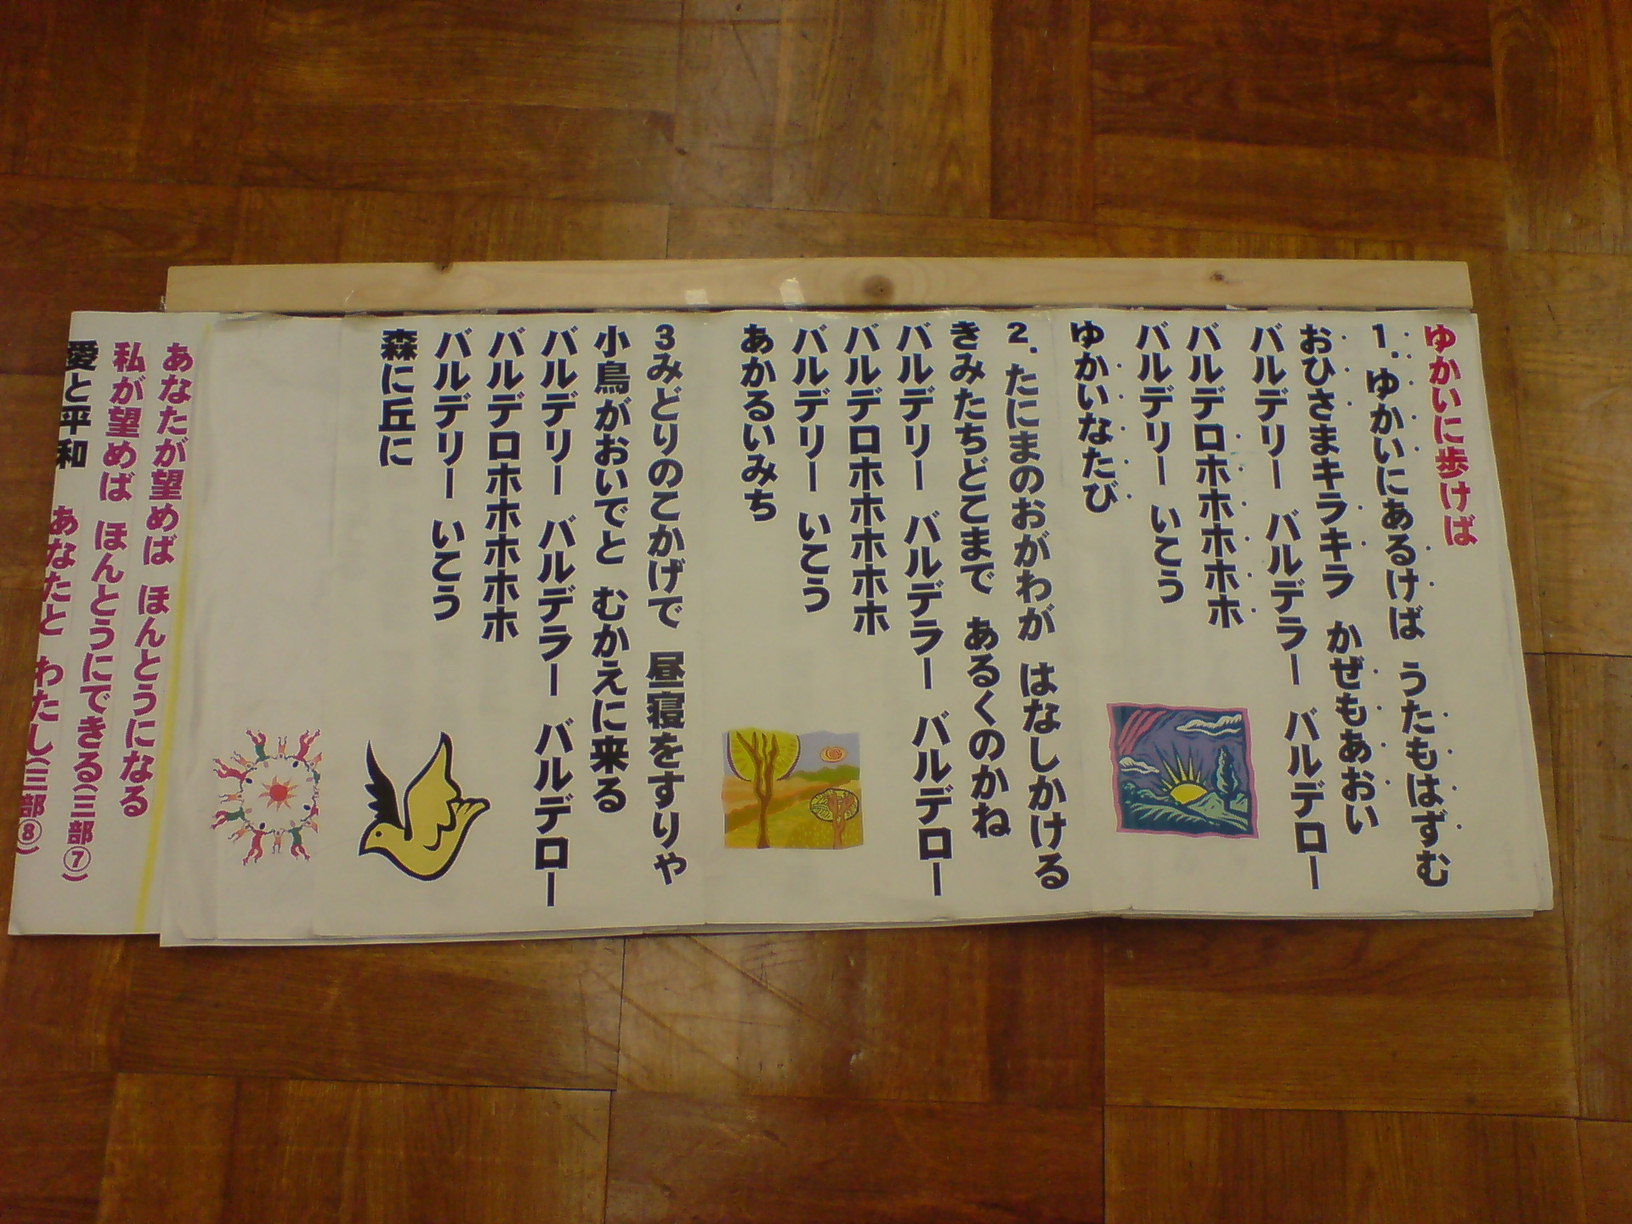 ゆかいに歩けば
1.ゆかいにあるけば うたもはずむ
おひさまキラキラ かぜもあおい
バルデリー バルデラー バルデロー
バルデロホホホホホ
バルデリー いこう
ゆかいなたび
2.たにまのおがわが はなしかける
きみたちどこまで あるくのかね
バルデリー バルデラー バルデロー
バルデロホホホホホ
バルデリー いこう
あかるいみち
3みどりのこかげで 昼寝をすりゃ
小鳥がおいでと むかえに来る
バルデリー バルデラー バルデロー
バルデロホホホホホ
バルデリー いこう
森に丘に
あなたが望めば ほんとうになる
私が望めば ほんとうにできる(三部⑦)
愛と平和 あなたと わたし(三部⑧)